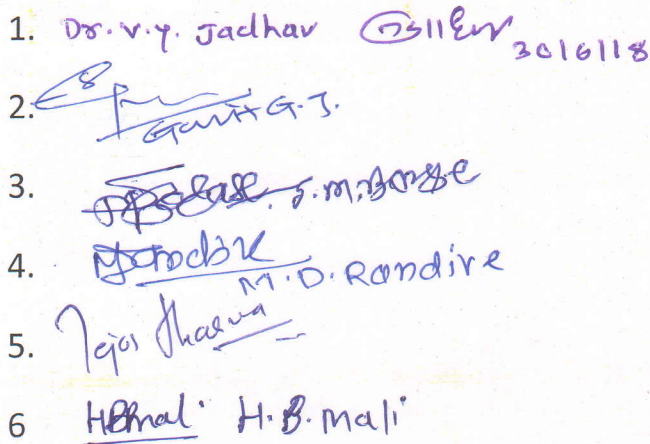 1. Dr. V. Y. Jadhav 30/6/18
2. Gavit G. J.
3. S. M. Bonse
4. M. D. Randive
5. Tejas Sharma
6 HBmali H. B. Mali